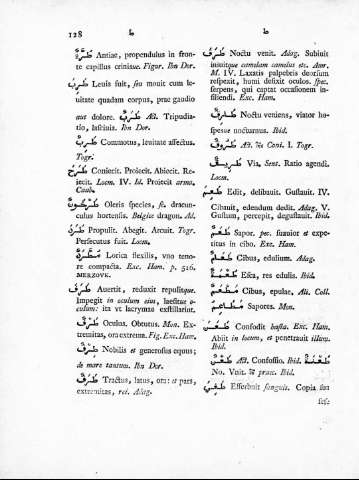 128
ط
ط
طُرَّةٌ Antiae, propendulus in fron-
te capillus crinisue. Figur. Ibn Dor.
طَرِبَ Leuis fuit, seu mouit cum le-
uitate quadam corpus, prae gaudio
aut dolore. طَرَبٌ Act. Tripudia-
tio, lasciuia. Ibn Dor.
طَرِبٌ Commotus, leuitate affectus.
Togr.
طَرَحَ Coniecit. Proiecit. Abiecit. Re-
iecit. Locm. IV. Id. Proiecit arma.
Caab.
طَرْخُونٌ Oleris species, sc. dracun-
culus hortensis. Belgice dragon. Ad.
طَرَدَ Propulit. Abegit. Arcuit. Togr.
Persecutus fuit. Locm.
Lorica flexilis, vno teno-
re compacta. Exc. Ham. p. 516.
MERZOVK.
طَرَفَ Auertit, reduxit repulitque.
Impegit in oculum eius, laesitue o-
culum: ita vt lacrymae exstillarint.
طَرْفٌ Oculus. Obtutus. Mon. Ex-
tremitas, ora extrema. Fig. Exc. Ham.
طِرْفٌ Nobilis et generosus equus;
de mare tantum. Ibn Dor.
طَرَفٌ Tractus, latus, ora: et pars,
extremitas, rei. Adag.
طَرَقَ Noctu venit. Adag. Subiuit
iniuitque camelam camelus etc. Amr.
M. IV. Laxatis palpebris deorsum
respexit, humi defixit oculos. Spec.
serpens, qui captat occasionem in-
siliendi. Exc. Ham.
طَارِقٌ Noctu veniens, viator ho-
spesue nocturnus. Ibid.
طُرُوقٌ Act. Coni. I. Togr.
طَرِيقٌ Via. Sent. Ratio agendi.
Locm.
طَعِمَ Edit, delibauit. Gustauit. IV.
Cibauit, edendum dedit. Adag. V.
Gustum, percepit, degustauit. Ibid.
طَعْمٌ Sapor. pec. suauior et expe-
titus in cibo. Exc. Ham.
طَعَامٌ Cibus, edulium. Adag.
طُعْمَةٌ Esca, res edulis. Ibid.
Cibus, epulae, Ali. Coll.
مَطَاعِمُ Sapores. Mon.
طَعَنَ Confodit hasta. Exc. Ham.
Abiit in locum, et penetrauit illum.
Ibid.
طَعْنٌ Act. Confossio. Ibid. طَعْنَةٌ
No. Veit. praec. Ibid.
Efferbuit sanguis. Copia sua